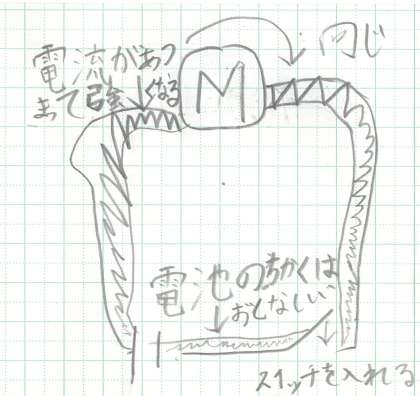 電流があつ
まって強
くなる
同じ
M
電池の近くは
おとなしい
スイッチを入れる